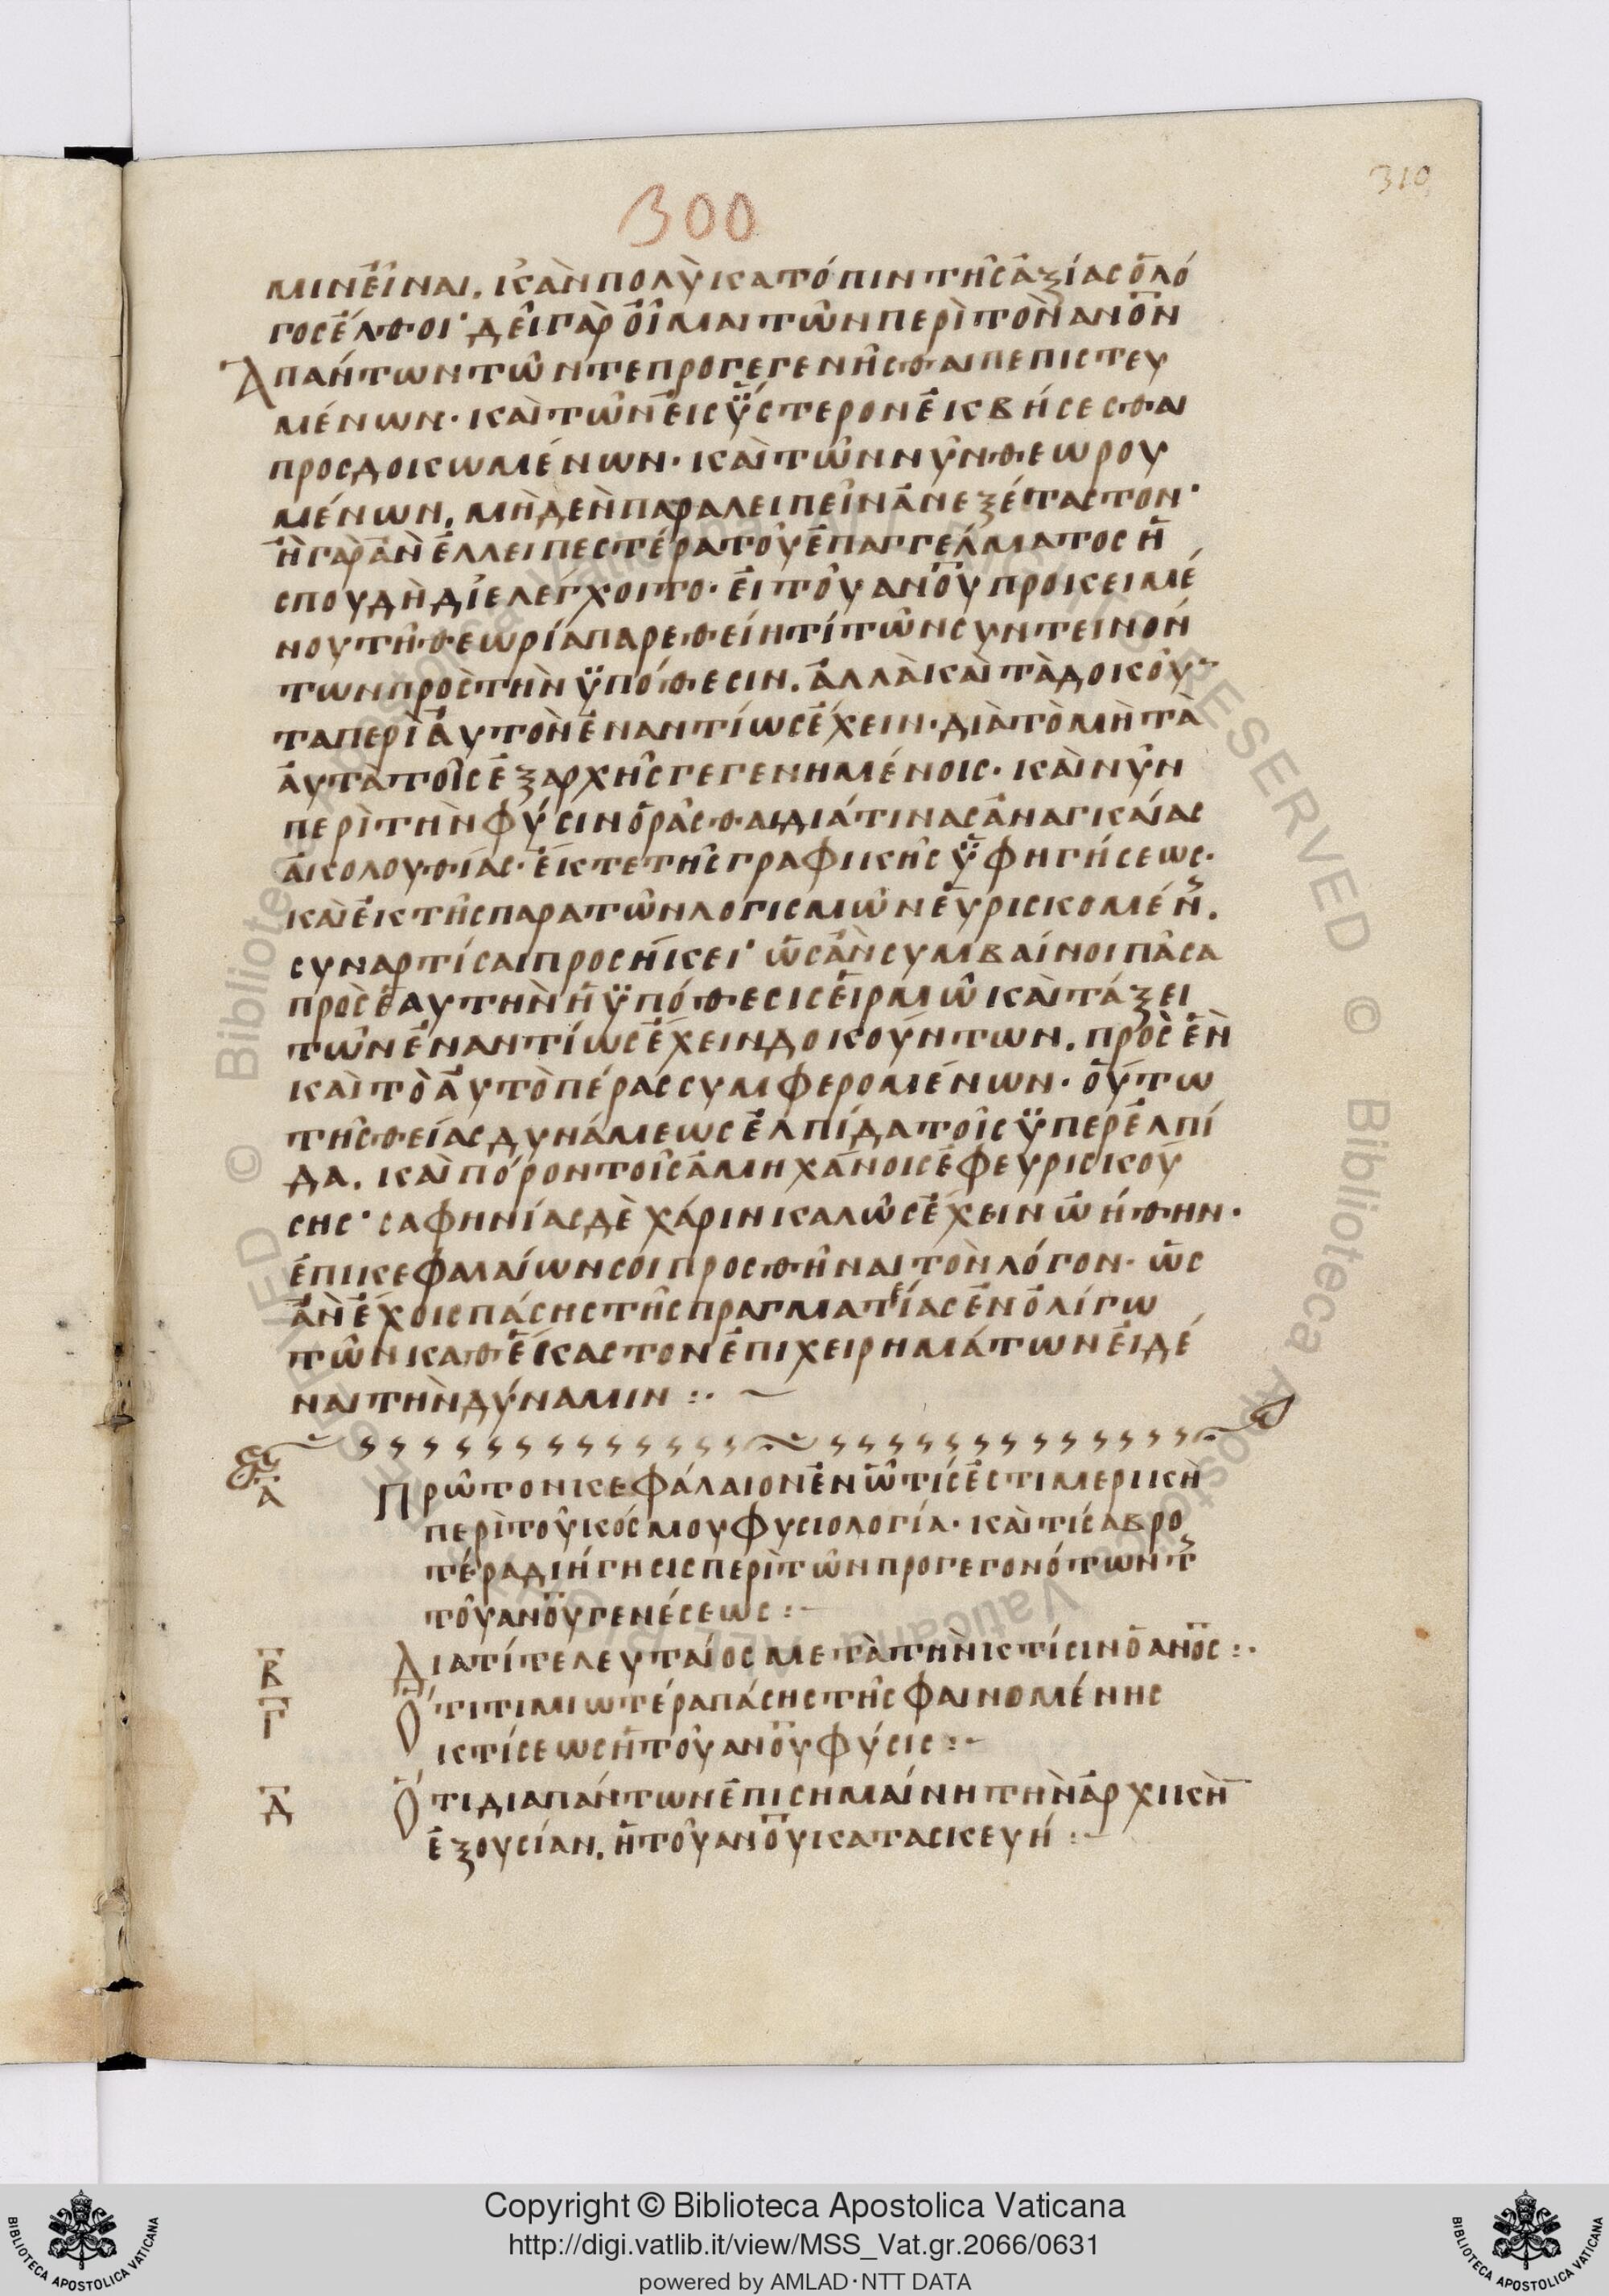 310
300
μιν εἶναι. κἂν πολὺ κατόπιν τῆς ἀξίας ὁ λό
γος ἔλθοι· δεῖ γὰρ οἶμαι τῶν περὶ τὸν ανον
ἁπάντων τῶν τε προγεγενῆσθαι πεπιστευ
μένων· καὶ τῶν εἰς ὕστερον ἐκβήσεσθαι
προσδοκωμένων· καὶ τῶν νῦν θεωρου
μένων. μὴδὲν παραλειπεῖν ἀνεξέταστον·
ἢ γὰρ ἂν ἐλλειπεστέρα τοῦ ἐπαγγέλματος ἡ
σπουδὴ διελέγχοιτο· εἰ τοῦ ανου προκειμέ
νου τῆ θεωρία παρεθείη τί τῶν συντεινόν
των πρὸς τὴν ὑπόθεσιν. ἀλλὰ καὶ τὰ δοκοῦ
τα περὶ ἀυτὸν ἐναντίως ἔχειν· διὰ τὸ μὴ τὰ
ἀυτὰ τοῖς ἐξαρχῆς γεγενημένοις· καὶ νῦν
περὶ τὴν φύσιν ὁρᾶσθαι διά τινας ἀναγκαίας
ἀκολουθίας· ἔκ τε τῆς γραφικῆς ὑφηγήσεως·
καὶ ἐκ τῆς παρα τῶν λογισμῶν εὑρισκομέν.
συναρτίσαι προσήκει· ὡς ἂν συμβαίνοι πᾶσα
πρὸς ἑαυτὴν ἡ ὑπόθεσις εἱρμῶ καὶ τάξει
τῶν ἐναντίως ἔχειν δοκούντων. πρὸς ἓν
καὶ τὸ ἀυτὸ πέρας συμφερομένων· οὕτω
τῆς θείας δυνάμεως ἐλπίδα τοῖς ὑπερελπί
δα. καὶ πόρον τοῖς ἀμηχάνοις ἐφευρισκού
σης· σαφηνίας δὲ χάριν καλῶς ἔχειν ὠήθην·
ἐπι κεφαλαίων σοι προσθῆναι τὸν λόγον· ὡς
ἂν ἔχοις πάσης τῆς πραγματείας ἐν ὀλίγω
τῶν καθ ἕκαστον ἐπιχειρημάτων εἰδέ
ναι τὴν δύναμιν :·
α Πρῶτον κεφάλαιον ἐν ὧ τίς ἐστι μερικὴ
περὶ τοῦ κόσμου φυσιολογία· καὶ τίς αβρο
τέρα διήγησις περὶ τῶν προγεγονότων τ
τοῦ ανου γενέσεως :-
β Διατί τελευταῖος μετὰ τὴν κτίσιν ὁ ανος :·
γ Ὅτι τιμιωτέρα πάσης τῆς φαινομένης
κτίσεως ἡ τοῦ ανου φύσις :-
δ Ὅτι διαπάντων ἐπισημαίνη τὴν ἀρχικὴ
ἐξουσίαν. ἡ τοῦ ανου κατασκευή :-
© Biblioteca Apostolica Vaticana ALL RIGHTS RESERVED
Copyright © Biblioteca Apostolica Vaticana
http://digi.vatlib.it/view/MSS_Vat.gr.2066/0631
powered by AMLAD·NTT DATA
BIBLIOTECA APOSTOLICA VATICANA
BIBLIOTECA APOSTOLICA VATICANA